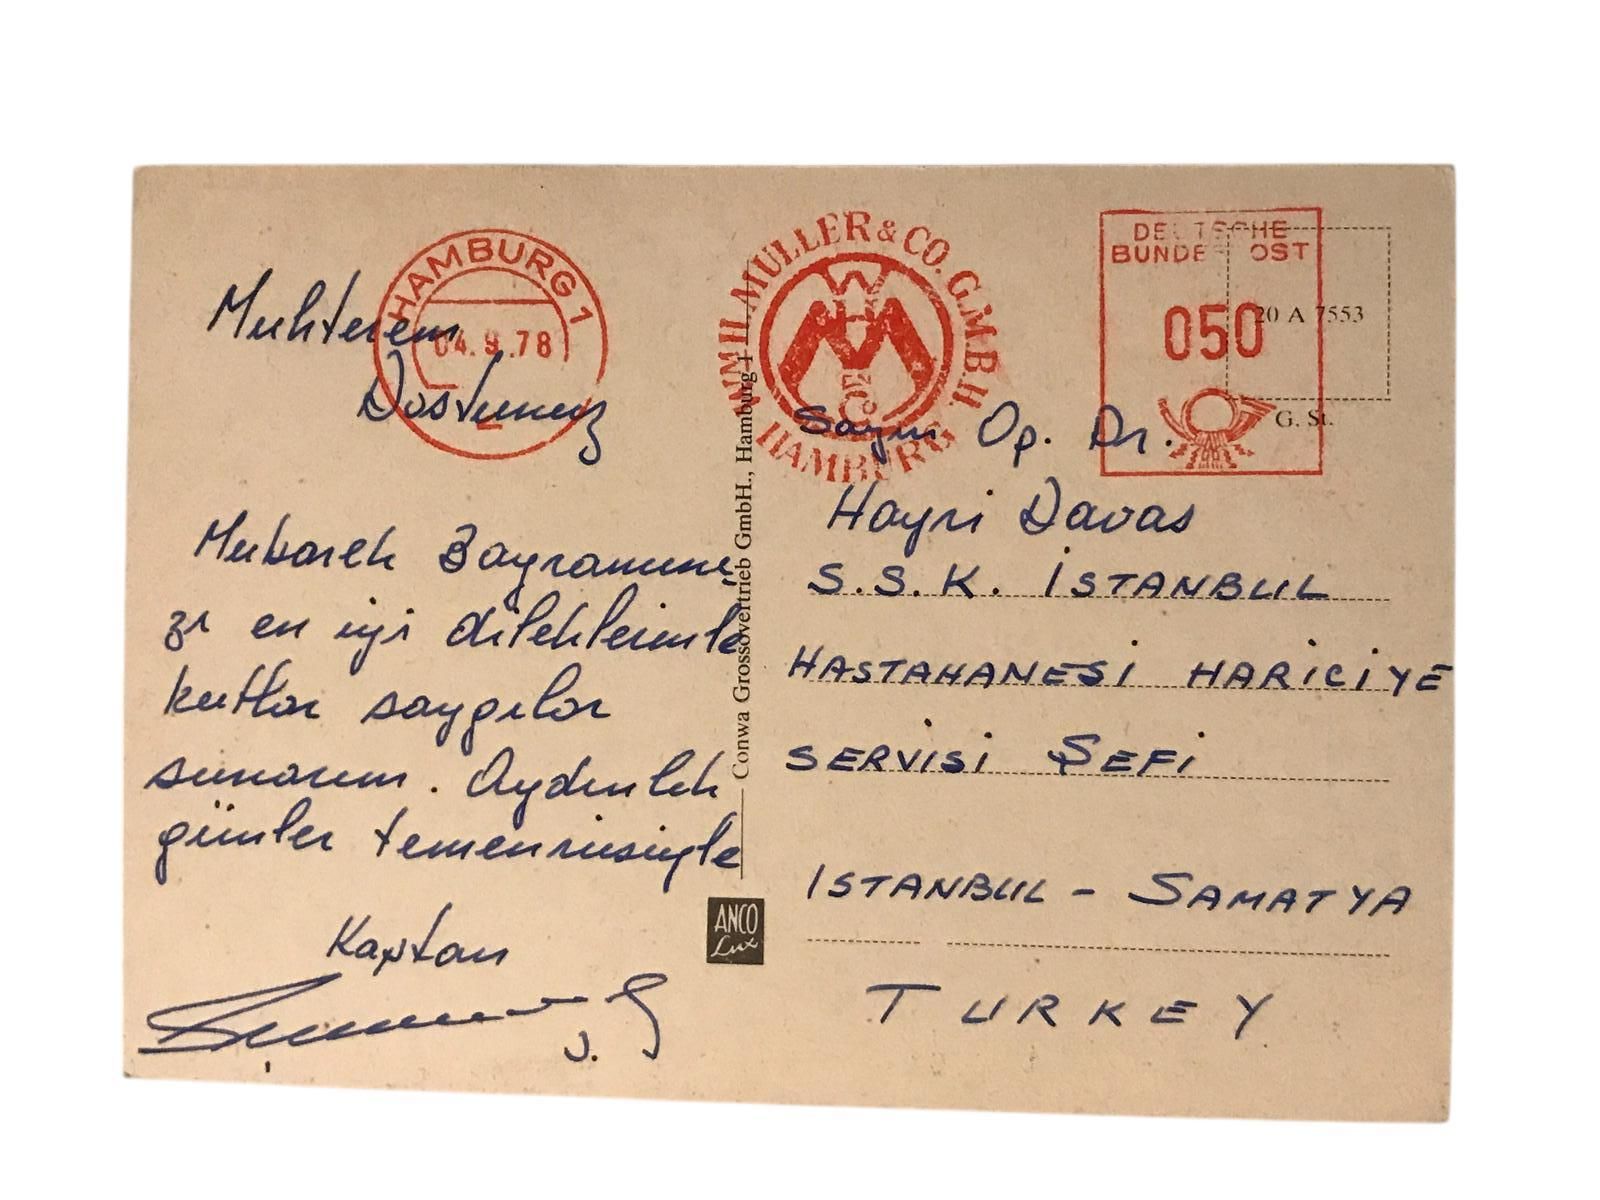 HAMBURG 1
04.9.78
WM H. MULLER & CO. G.M.B.H.
HAMBURG
DEUTSCHE
BUNDESPOST
050
20 A 7553
G. St.
Muhterem
Dostumuz
Mubarek Bayramını-
zı en iyi dileklerimle
kutlar saygılar
sunarım. Aydınlık
günler temennisiyle
Kaptan
Conwa Grossovertrieb GmbH., Hamburg 1
ANCO
Lux
Sayın Op. Dr.
Hayri Davas
S.S.K. İSTANBUL
HASTAHANESİ HARİCİYE
SERVİSİ ŞEFİ
ISTANBUL - SAMATYA
TURKEY